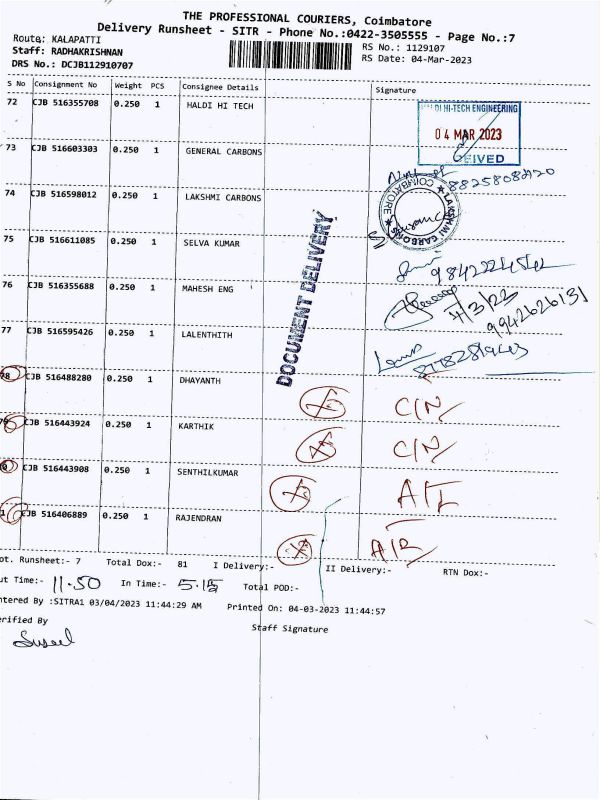 THE PROFESSIONAL COURIERS, Coimbatore
Delivery Runsheet - SITR - Phone No.:0422-3505555 - Page No.:7
Route: KALAPATTI
RS No.: 1129107
Staff: RADHAKRISHNAN
RS Date: 04-Mar-2023
DRS No.: DCJB112910707
S No Consignment No Weight PCS Consignee Details Signature
72 CJB 516355708 0.250 1 HALDI HI TECH
HI-TECH ENGINEERING
04 MAR 2023
EIVED
73 CJB 516603303 0.250 1 GENERAL CARBONS
74 CJB 516598012 0.250 1 LAKSHMI CARBONS
COIMBATORE ★ LAKSHMI CARBO
75 CJB 516611085 0.250 1 SELVA KUMAR
76 CJB 516355688 0.250 1 MAHESH ENG
9942626131
77 CJB 516595426 0.250 1 LALENTHITH
DOCUMENT DELIVERY
78 CJB 516488280 0.250 1 DHAYANTH C/N
79 CJB 516443924 0.250 1 KARTHIK C/N
0 CJB 516443908 0.250 1 SENTHILKUMAR
1 CJB 516406889 0.250 1 RAJENDRAN
ot. Runsheet:- 7 Total Dox:- 81 I Delivery:- II Delivery:- RTN Dox:-
ut Time:- 11.50 In Time:- 5.15 Total POD:-
ntered By :SITRA1 03/04/2023 11:44:29 AM Printed On: 04-03-2023 11:44:57
erified By
Staff Signature